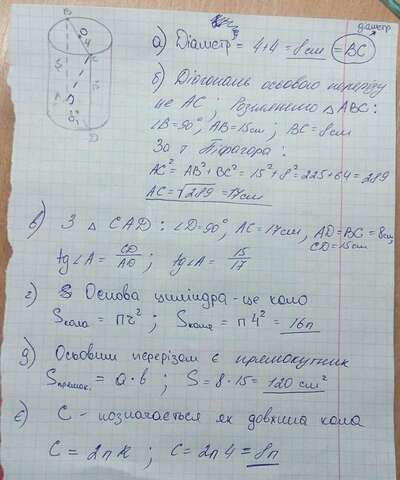 діаметр
а) Діаметр = 4+4 = 8 см = BC
б) Діагональ осьового перерізу
це AC; Розглянемо △ABC:
∠B=90°, AB=15см, BC=8см
За т Піфагора:
AC² = AB² + BC² = 15² + 8² = 225 + 64 = 289
AC = √289 = 17см
в) З △ CAD: ∠D=90°, AC=17см, AD=BC=8см,
CD=15см
tg∠A = CD/AD; tg∠A = 15/17
г) Основа циліндра - це коло
Sкола = пr²; Sкола = п4² = 16п
д) Осьовим перерізом є прямокутник
Sпрямок. = a·b; S = 8·15 = 120 см²
є) C - позначається як довжина кола
C = 2пR; C = 2п4 = 8п